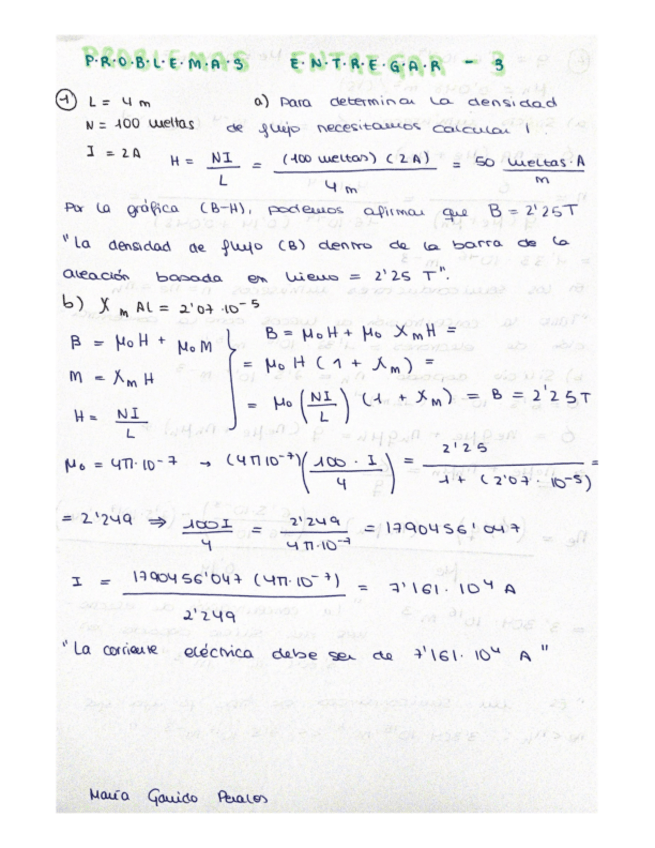 P.R.O.B.L.E.M.A.S E.N.T.R.E.G.A.R - 3
1 L = 4 m a) Para determinar la densidad
N = 100 vueltas de flujo necesitamos calcular :
I = 2A H = NI / L = (100 vueltas) (2A) / 4m = 50 vueltas·A / m
Por la gráfica (B-H), podemos afirmar que B = 2'25T
"La densidad de flujo (B) dentro de la barra de la
aleación basada en hierro = 2'25 T".
b) χm AL = 2'07·10^-5
B = μ0H + μ0M
M = χmH
H = NI / L
B = μ0H + μ0 χmH =
= μ0H (1 + χm) =
= μ0 (NI / L) (1 + χm) = B = 2'25T
μ0 = 4π·10^-7 → (4π10^-7)(100·I / 4) = 2'25 / 1 + (2'07·10^-5) =
= 2'249 ⇒ 100I / 4 = 2'249 / 4π·10^-7 = 1790456'047
I = 1790456'047 (4π·10^-7) / 2'249 = 7'161·10^4 A
"La corriente eléctrica debe ser de 7'161·10^4 A"
María Garrido Perales